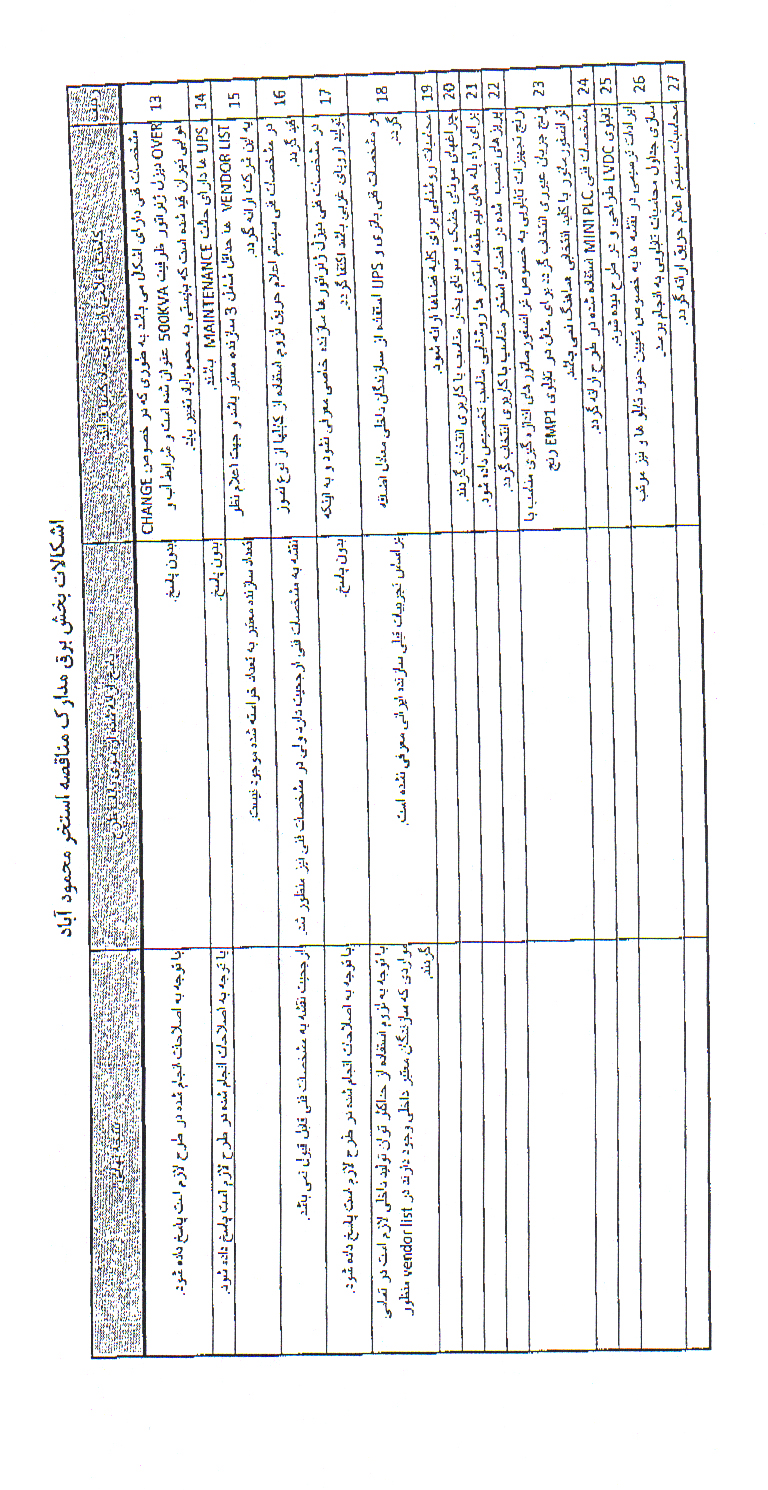 اشکالات بخش برق مدارک مناقصه استخر محمود آباد
ردیف
13
مشخصات فنی دارای اشکال می باشد به طوری که در خصوص CHANGE
OVER دیزل ژنراتور ظرفیت 500KVA عنوان شده است و شرایط آب و
هوایی تهران قید شده است که بایستی به محمودآباد تغییر یابد.
بدون پاسخ.
با توجه به اصلاحات انجام شده در طرح لازم است پاسخ داده شود.
14
UPS ها دارای حالت MAINTENANCE باشد.
بدون پاسخ.
با توجه به اصلاحات انجام شده در طرح لازم است پاسخ داده شود.
15
VENDOR LIST ها حداقل شامل 3 سازنده معتبر باشد و جهت اعلام نظر
به این شرکت ارائه گردد.
تعداد سازنده معتبر به تعداد خواسته شده موجود نیست.
16
در مشخصات فنی سیستم اعلام حریق لزوم استفاده از کابلها از نوع نسوز
قید گردد.
نقشه به مشخصات فنی ارجحیت دارد ولی در مشخصات فنی نیز منظور شد.
ارجحیت نقشه به مشخصات فنی قابل قبول نمی باشد.
17
در مشخصات فنی دیزل ژنراتور ها سازنده خاصی معرفی نشود و به اینکه
تولید اروپای غربی باشد اکتفا گردد.
بدون پاسخ.
با توجه به اصلاحات انجام شده در طرح لازم است پاسخ داده شود.
18
در مشخصات فنی باتری و UPS استفاده از سازندگان داخلی معادل اضافه
گردد.
بر اساس تجربیات قبلی سازنده ایرانی معرفی نشده است.
با توجه به لزوم استفاده از حداکثر توان تولید داخلی لازم است در تمامی
مواردی که سازندگان معتبر داخلی وجود دارند در vendor list منظور
گردند.
19
محاسبات روشنایی برای کلیه فضاها ارائه شود.
20
چراغهای سونای خشک و سونای بخار مناسب با کاربری انتخاب گردند
21
برای راه پله های نیم طبقه استخر ها روشنایی مناسب تخصیص داده شود.
22
پریز های نصب شده در فضای استخر مناسب با کاربری انتخاب گردد.
23
رنج تجهیزات تابلویی به خصوص ترانسفورماتور های اندازه گیری مناسب با
رنج جریان عبوری انتخاب گردد برای مثال در تابلوی EMP1 رنج
ترانسفورماتور با کلید انتخابی هماهنگ نمی باشد.
24
مشخصات فنی MINI PLC استفاده شده در طرح ارائه گردد.
25
تابلوی LVDC طراحی و در طرح دیده شود.
26
ایرادات ترسیمی در نقشه ها به خصوص تعیین حدود تابلو ها و نیز مرتب
سازی جداول محاسبات تابلویی به انجام برسد.
27
محاسبات سیستم اعلام حریق ارائه گردد.